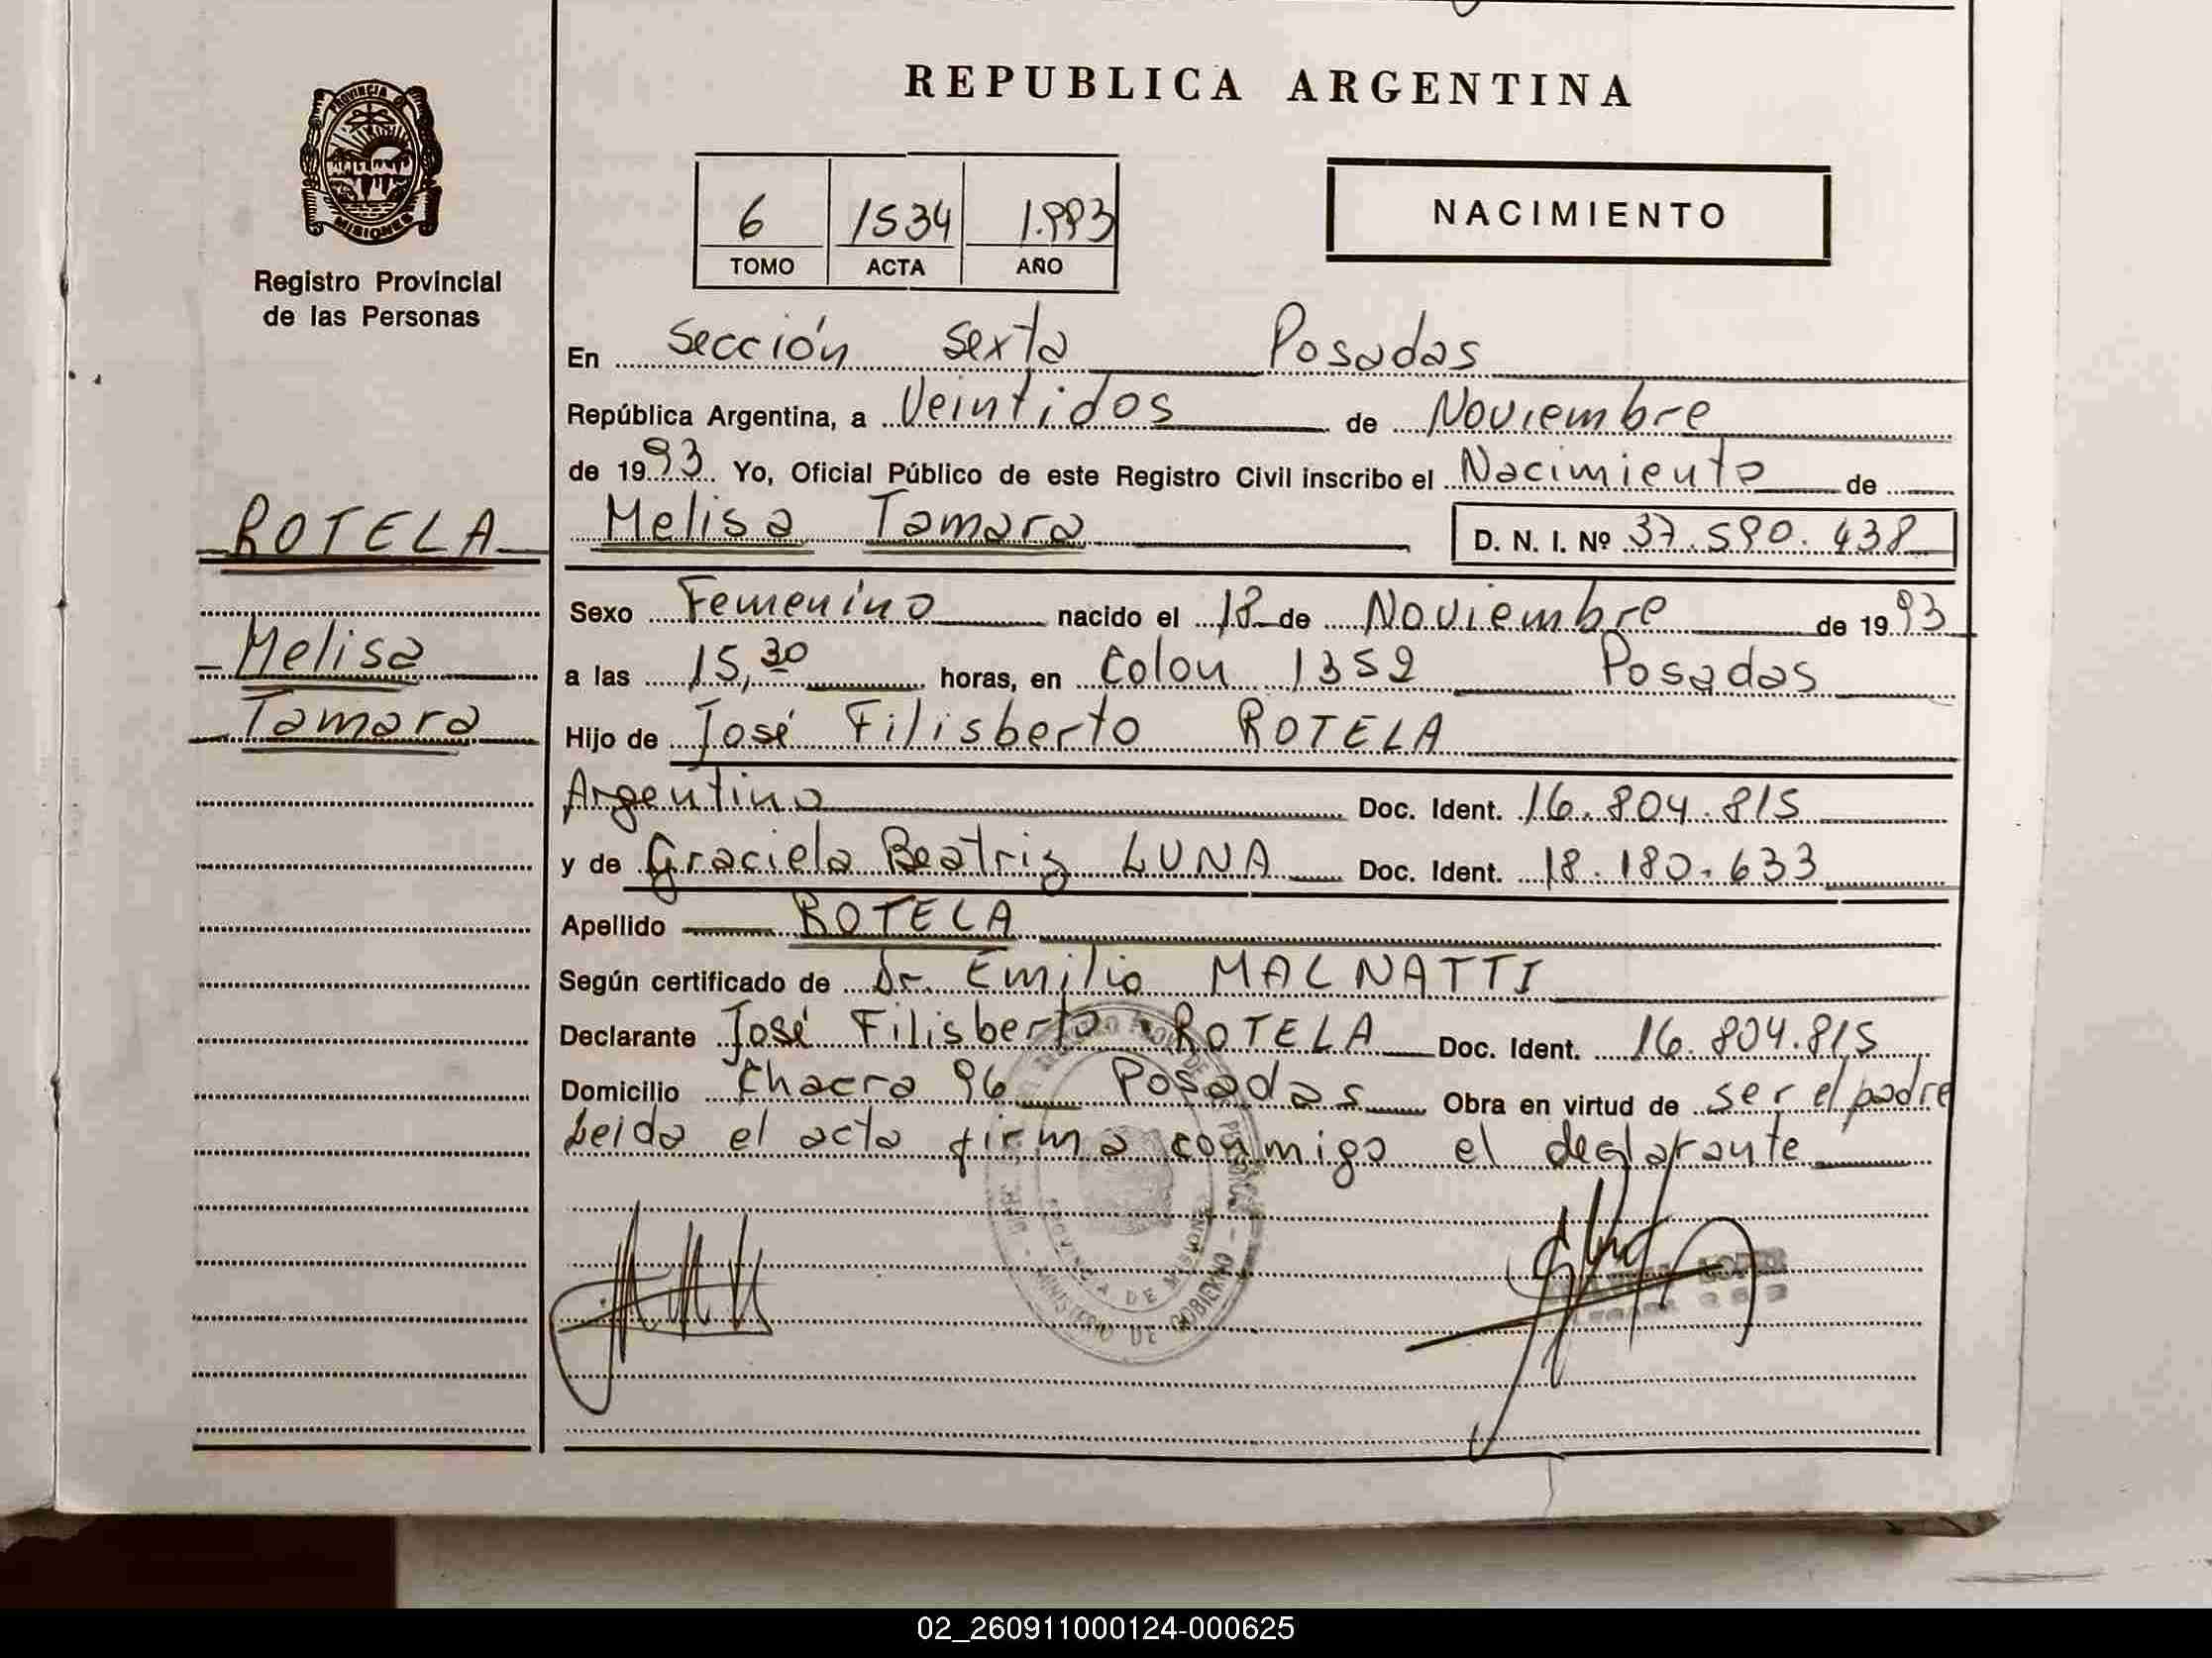 REPUBLICA ARGENTINA
PROVINCIA DE
MISIONES
Registro Provincial
de las Personas
6 1534 1.993
TOMO ACTA AÑO
NACIMIENTO
En Sección sexta Posadas
República Argentina, a Veintidos de Noviembre
de 1993 Yo, Oficial Público de este Registro Civil inscribo el Nacimiento de
ROTELA
Melisa Tamara D. N. I. Nº 37.590.438
Sexo Femenino nacido el 18 de Noviembre de 1993
Melisa
a las 15,30 horas, en Colon 1352 Posadas
Tamara
Hijo de José Filisberto ROTELA
Argentino Doc. Ident. 16.804.815
y de Graciela Beatriz LUNA Doc. Ident. 18.180.633
Apellido ROTELA
Según certificado de Dr. Emilio MALNATTI
Declarante José Filisberto ROTELA Doc. Ident. 16.804.815
Domicilio Chacra 96 Posadas Obra en virtud de ser el padre
Leida el acta firma conmigo el declarante
PROVINCIA DE MISIONES
MINISTERIO DE GOBIERNO
02_260911000124-000625